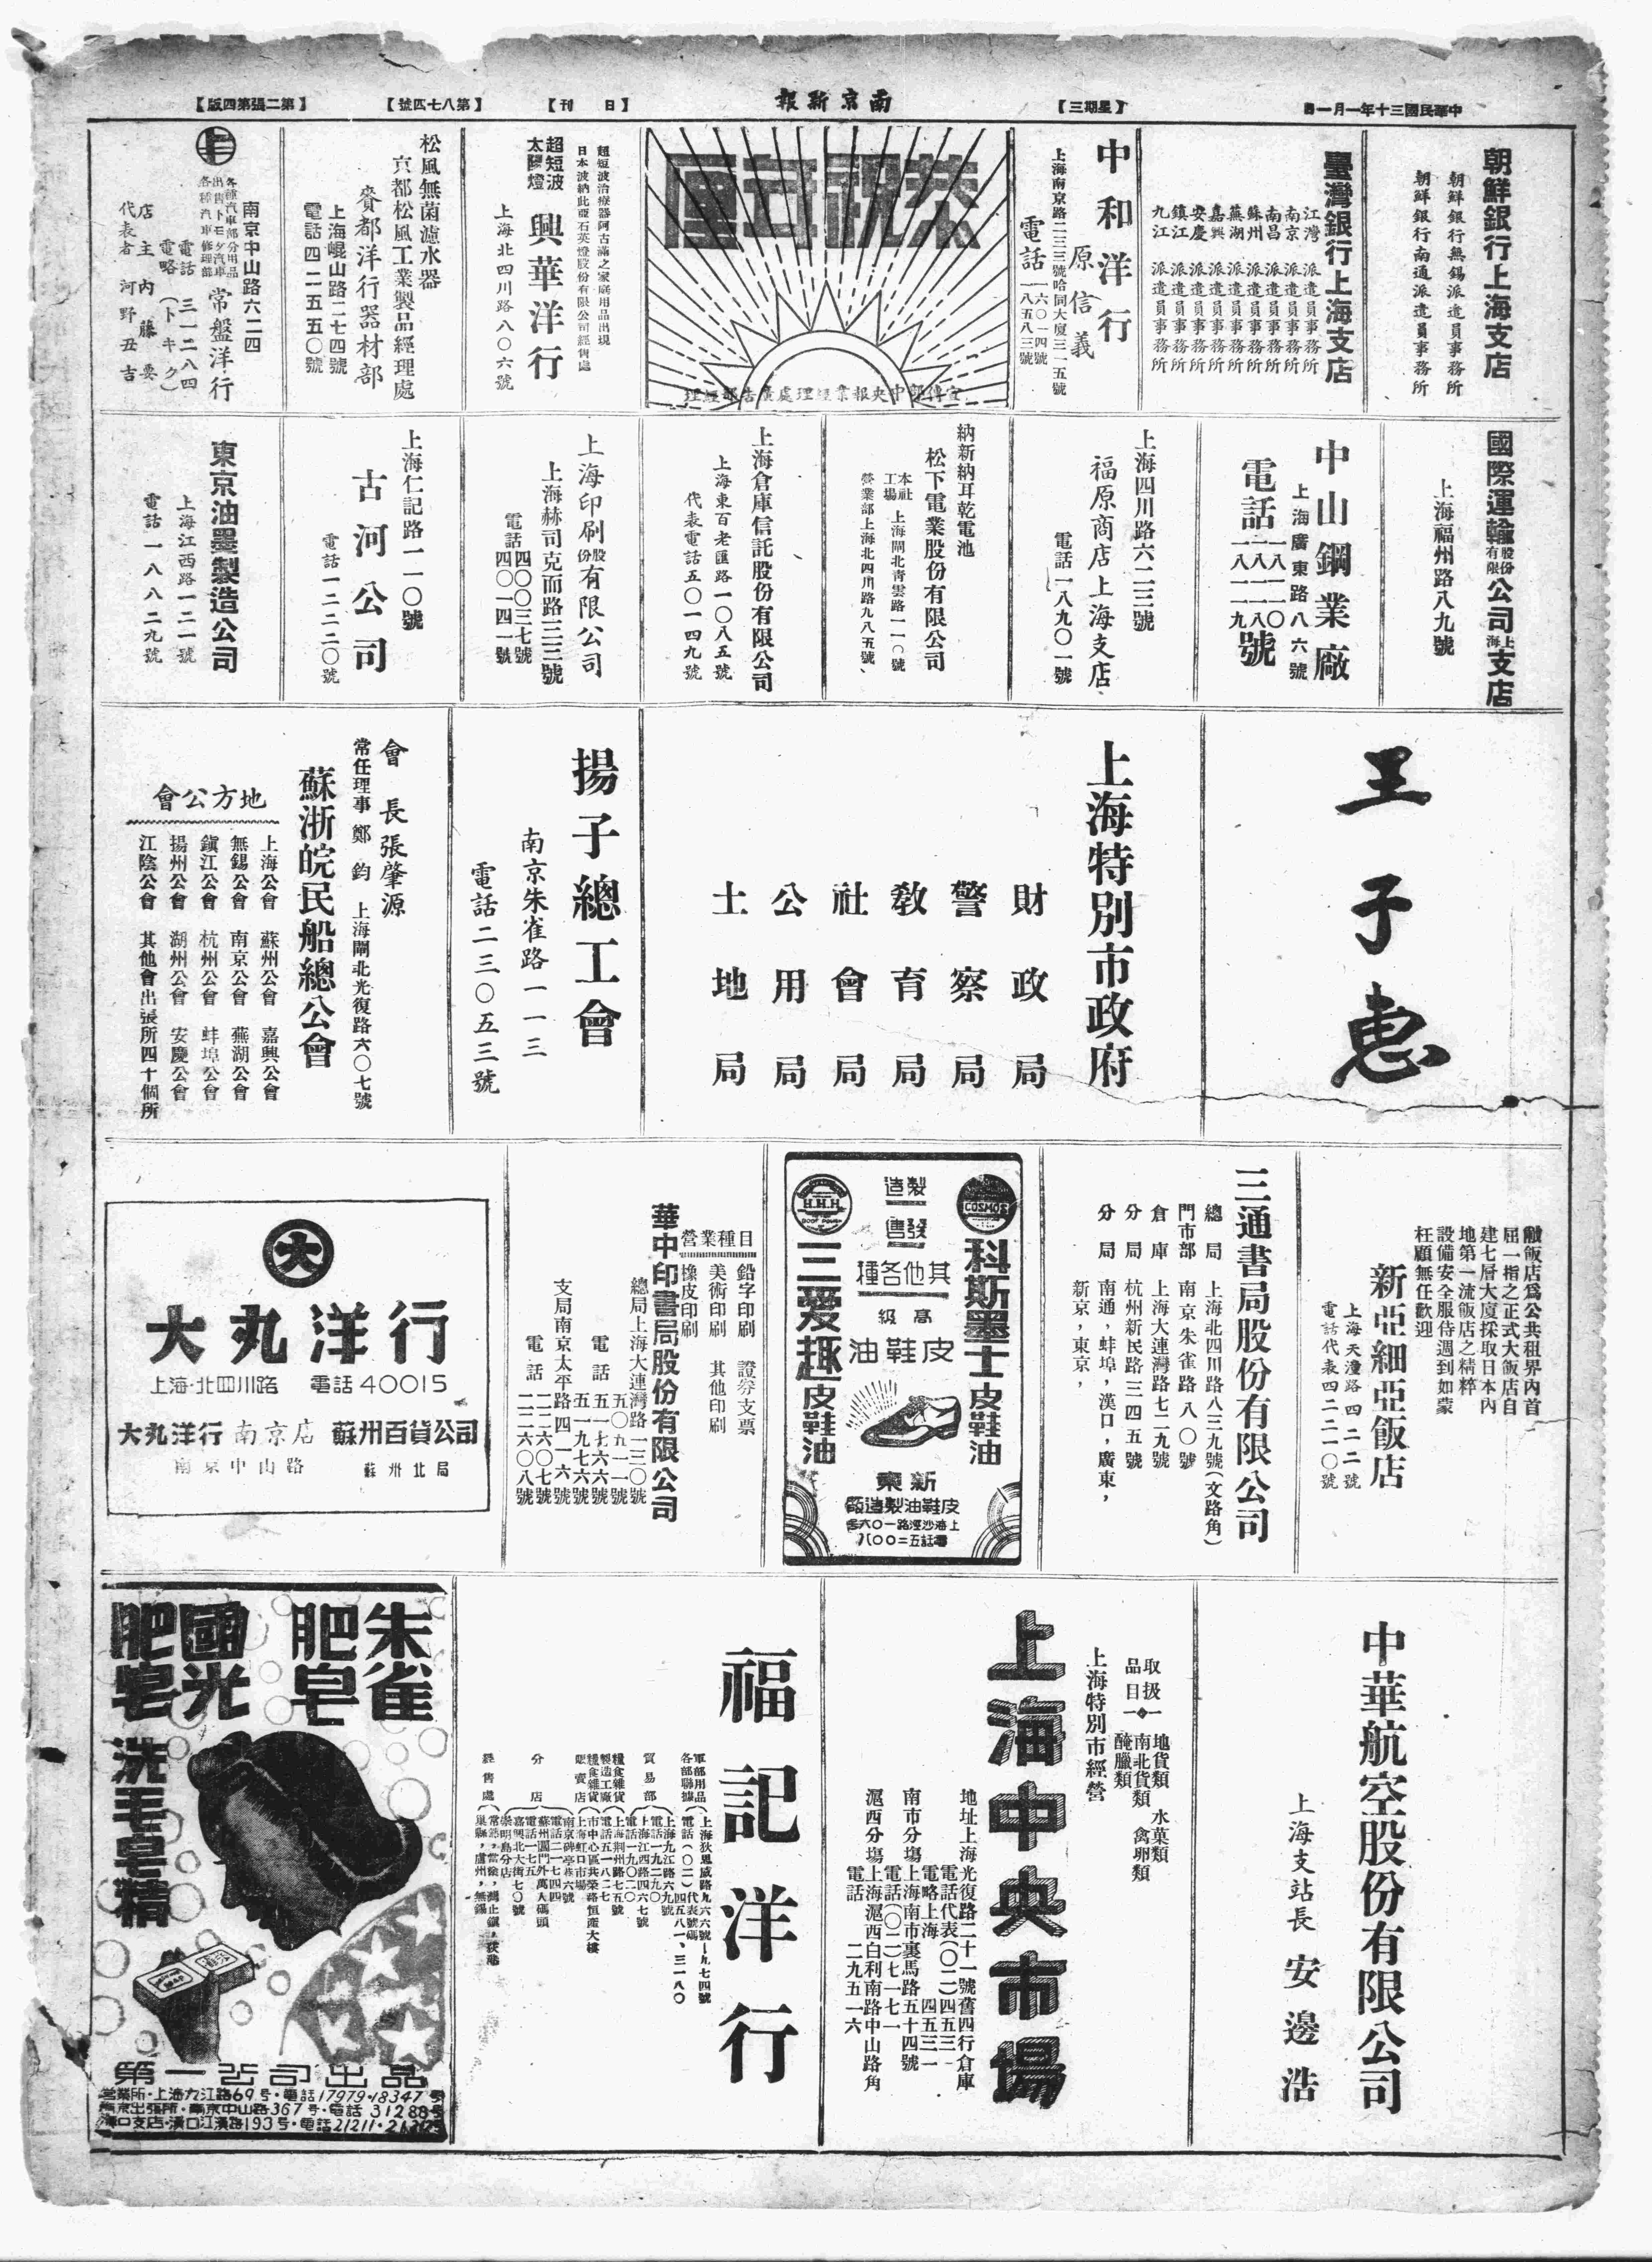 中華民國三十年一月一日
【星期三】
南京新報
【日刊】
【第八七四號】
【第二張第四版】
朝鮮銀行上海支店
朝鮮銀行無錫派遣員事務所
朝鮮銀行南通派遣員事務所
臺灣銀行上海支店
江灣派遣員事務所
南京派遣員事務所
南昌派遣員事務所
蘇州派遣員事務所
蕪湖派遣員事務所
嘉興派遣員事務所
安慶派遣員事務所
鎮江派遣員事務所
九江派遣員事務所
中和洋行
原信義
上海南京路二三三號哈同大廈三一五號
電話一六〇一四號
一八五八三號
恭祝百僖
宣傳部中央報業經理處廣告部經理
超短波治療器阿古滿之家庭用品出現
日本波納此亞石英燈股份有限公司經售處
超短波
太陽燈
興華洋行
上海北四川路八〇六號
松風無菌濾水器
京都松風工業製品經理處
賚都洋行器材部
上海崐山路二七四號
電話四二五五〇號
南京中山路六二四
各種汽車部分用品
出售トモタ汽車
各種汽車修理部
常盤洋行
電話三一二八四
電略(トキク)
店主內藤要
代表者河野丑吉
國際運輸股份有限公司上海支店
上海福州路八九號
中山鋼業廠
上海廣東路八六號
電話一八一一〇
一八一一八
一八一一九號
上海四川路六二三號
福原商店上海支店
電話一八九〇一號
納新納耳乾電池
松下電業股份有限公司
本社工場上海閘北青雲路一一〇號
營業部上海北四川路九八五號
上海倉庫信託股份有限公司
上海東百老匯路一〇八五號
代表電話五〇一四九號
上海印刷股份有限公司
上海赫司克而路三三號
電話四〇〇三七號
四〇一四一號
上海仁記路一一〇號
古河公司
電話一二二二〇號
東京油墨製造公司
上海江西路一二一號
電話一八八二九號
王子惠
上海特別市政府
財政局
警察局
教育局
社會局
公用局
土地局
揚子總工會
南京朱雀路一一三
電話二三〇五三號
會長張肇源
常任理事鄭鈞
上海閘北光復路六〇七號
蘇浙皖民船總公會
地方公會
上海公會 蘇州公會 嘉興公會
無錫公會 南京公會 蕪湖公會
鎮江公會 杭州公會 蚌埠公會
揚州公會 湖州公會 安慶公會
江陰公會 其他會出張所四十個所
敝飯店為公共租界內首
屈一指之正式大飯店自
建七層大廈採取日本內
地第一流飯店之精粹
設備安全服侍週到如蒙
枉顧無任歡迎
新亞細亞飯店
上海天潼路四二二號
電話代表四二二一〇號
三通書局股份有限公司
總局 上海北四川路八三九號(文路角)
門市部 南京朱雀路八〇號
倉庫 上海大連灣路七二九號
分局 杭州新民路三四五號
分局 南通，蚌埠，漢口，廣東，
新京，東京，
COSMOS
科斯墨士皮鞋油
製造
發售
其他各種
高級
皮鞋油
H.H.H
BOOT POWER
三愛趣皮鞋油
新東
皮鞋油製造廠
上海沙涇路一〇六號
電話五二〇〇八
營業種目
鉛字印刷 證券支票
美術印刷 其他印刷
橡皮印刷
華中印書局股份有限公司
總局上海大連灣路一三〇號
電話五〇九一一號
五一七六六號
五一九七六號
支局南京太平路四一六號
電話二二六〇七號
二二六〇八號
大
大丸洋行
上海・北四川路 電話40015
大丸洋行南京店 蘇州百貨公司
南京中山路 蘇州北局
中華航空股份有限公司
上海支站長 安邊浩
取扱品目
地貨類 水菓類
南北貨類 禽卵類
醃臘類
上海特別市經營
上海中央市場
地址上海光復路二十一號舊四行倉庫
電話代表(〇二)四五三一
電略上海四五三一
南市分場上海南市裏馬路五十四號
電話(〇二)七一七一
滬西分場上海滬西白利南路中山路角
電話二九五一六
福記洋行
軍部用品
各部聯據
上海狄思威路九六六號—九七四號
電話(〇二)代表號碼四五八一、三一八〇
貿易部
上海九江路六九號
電話一九二九〇
上海江西路四六七號
電話一九〇二〇
糧食雜貨製造工廠
上海荆州路七五號
電話五一八二七
糧食雜貨販賣店
市中心區共榮路恒產大樓
上海虹口市場
分店
南京碑亭巷六號
電話二一七四四
蘇州閶門外萬人碼頭
電話一七五
嘉興北大街七〇號
崇明島分店
經售處
朱雀肥皂
國光肥皂
洗毛皂精
第一公司出品
營業所・上海九江路69号・電話17979・18347号
南京出張所・南京中山路367号・電話31288号
漢口支店・漢口江漢路193号・電話21211・